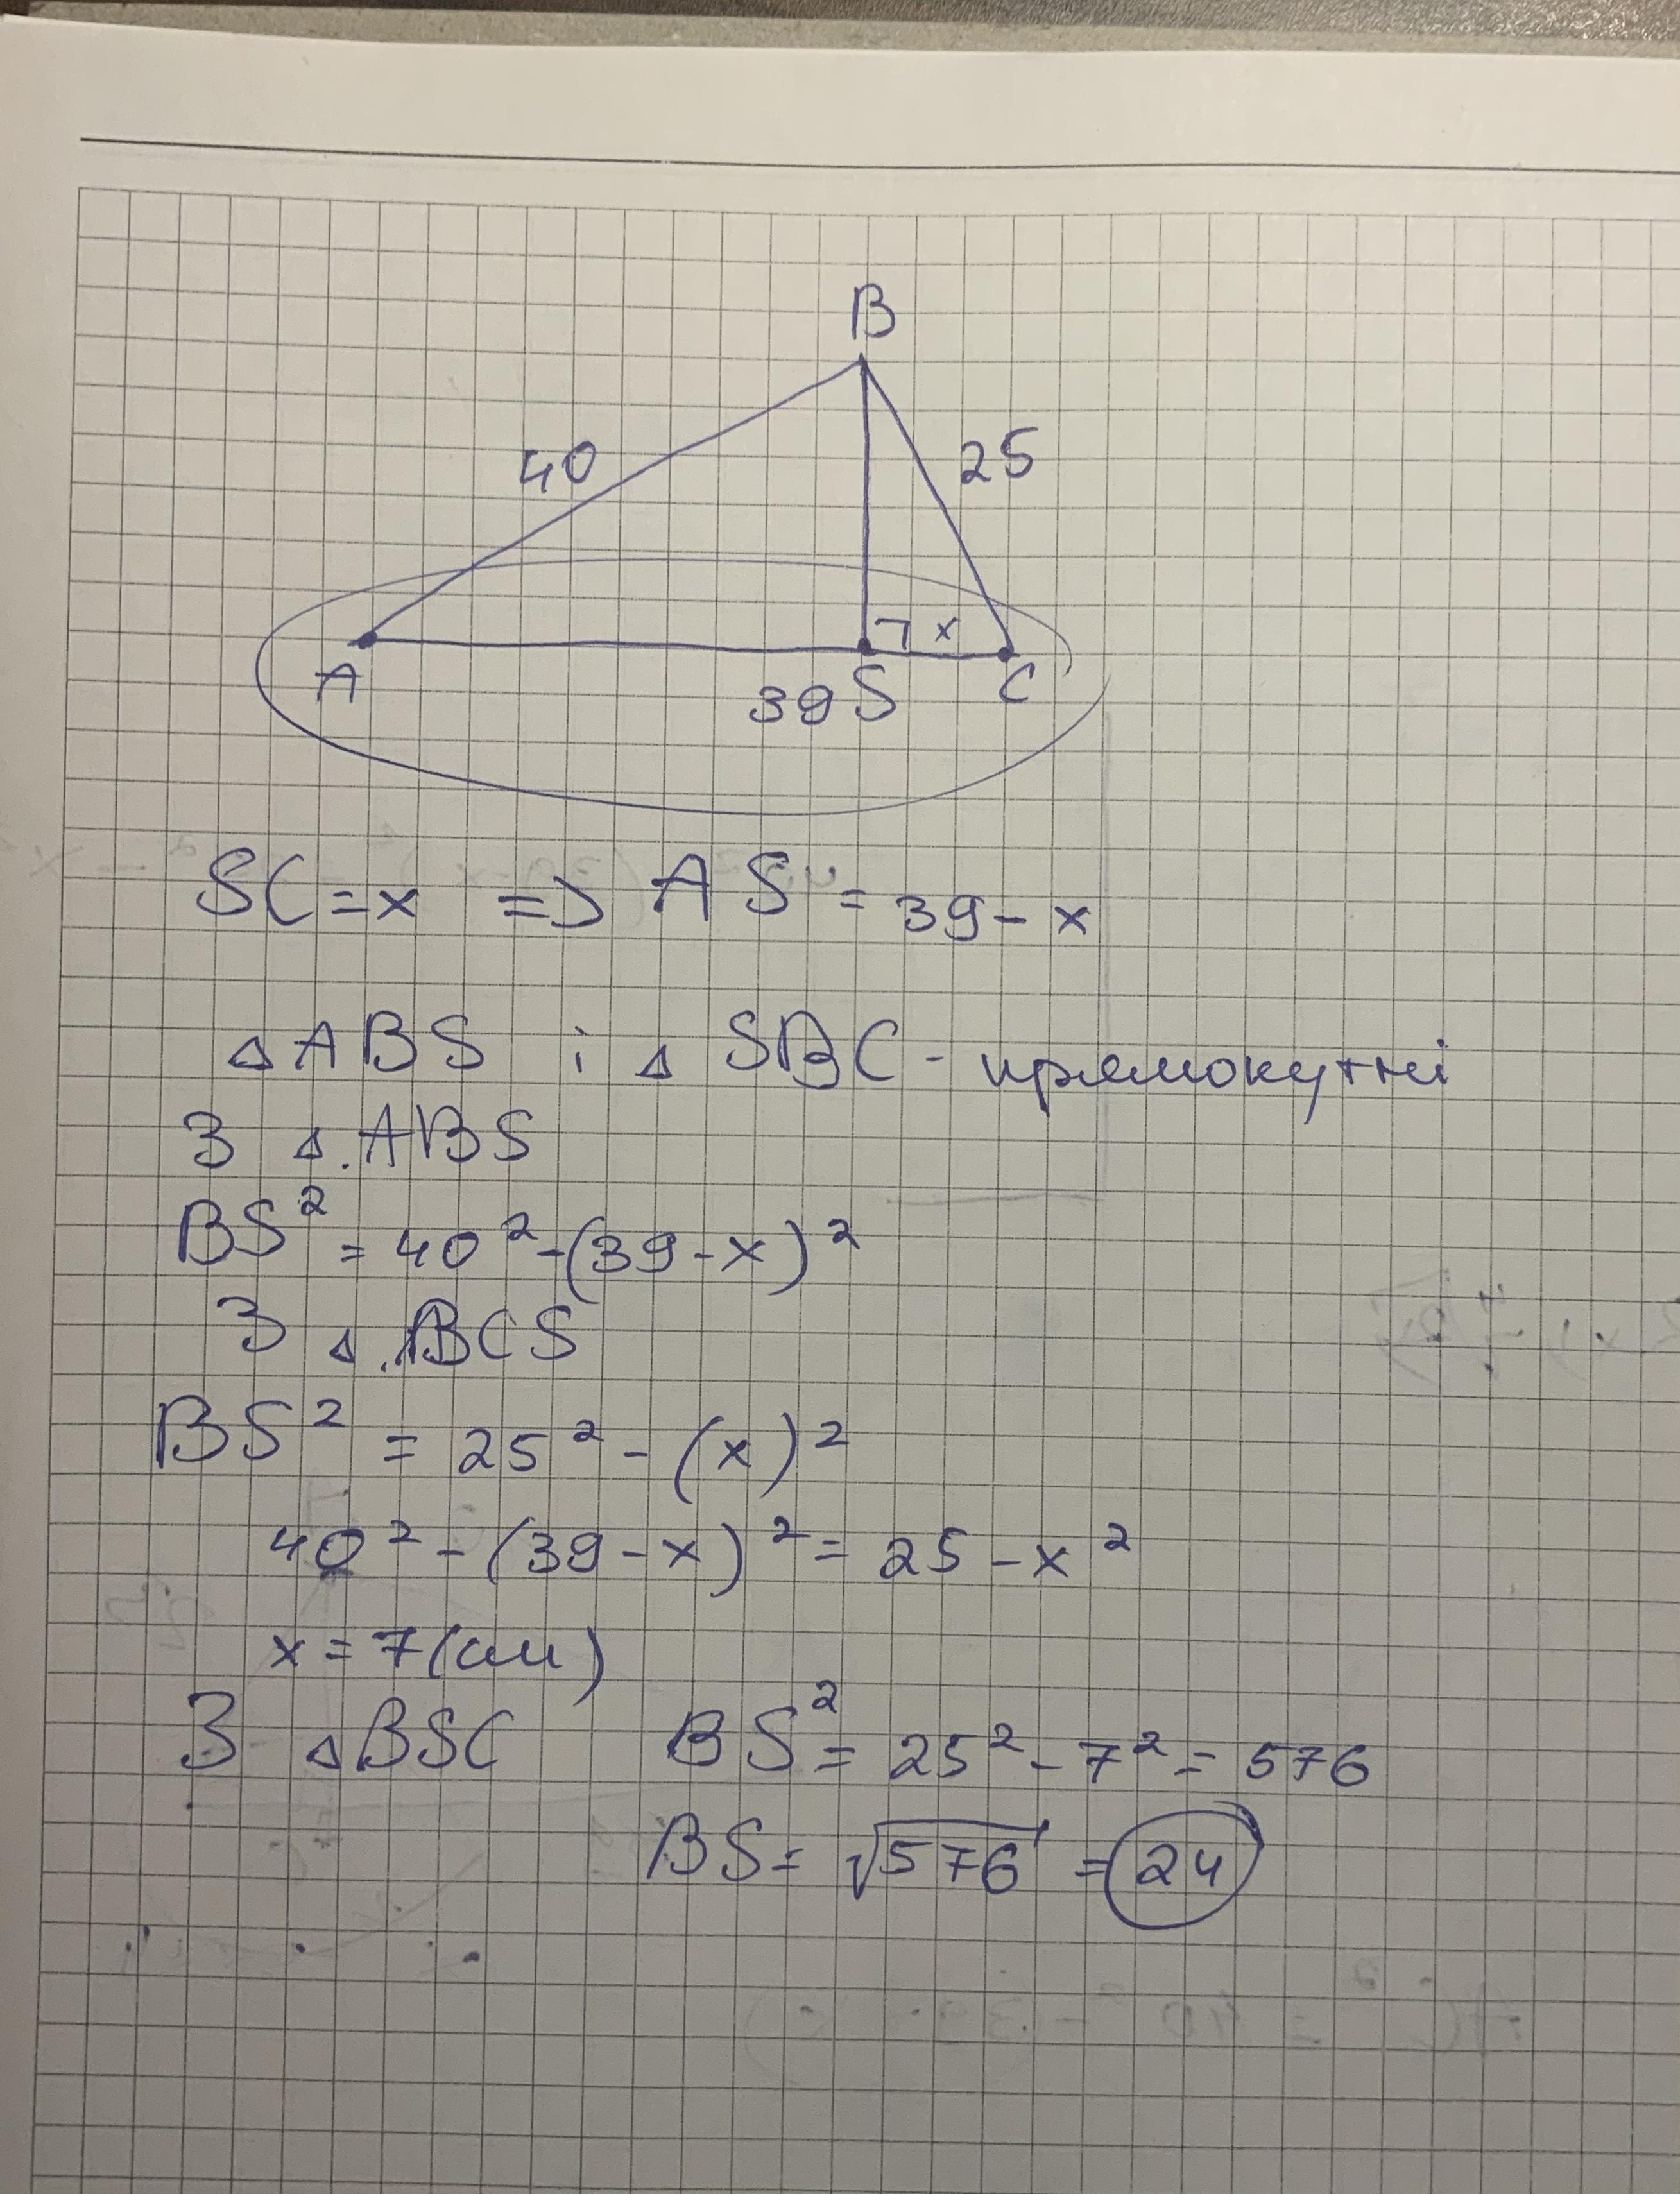 B
40
25
x
A
39 S
C
SC = x => AS = 39 - x
△ABS і △SBC - прямокутні
З △.ABS
BS² = 40² - (39 - x)²
З △.BCS
BS² = 25² - (x)²
40² - (39 - x)² = 25 - x²
x = 7(см)
З △BSC BS² = 25² - 7² = 576
BS = √576 = 24